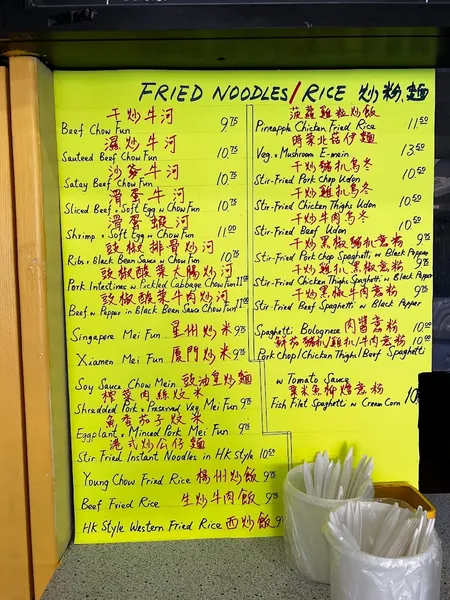 FRIED NOODLES/RICE 炒粉、麵
干炒牛河
Beef Chow Fun 9.75
濕炒牛河
Sauteed Beef Chow Fun 10.75
沙爹牛河
Satay Beef Chow Fun 10.75
滑蛋牛河
Sliced Beef & Soft Egg w Chow Fun 10.75
滑蛋蝦河
Shrimp & Soft Egg w Chow Fun 11.00
豉椒排骨炒河
Rib & Black Bean Sauce w Chow Fun 10.75
豉椒酸菜大腸炒河
Pork Intestines w Pickled Cabbage Chow Fun 11.00
豉椒酸菜牛肉炒河
Beef w Pepper in Black Bean Sauce Chow Fun 11.00
Singapore Mei Fun 星州炒米 9.75
Xiamen Mei Fun 廈門炒米 9.75
Soy Sauce Chow Mein 豉油皇炒麵
榨菜肉絲炆米
Shredded Pork & Preserved Veg. Mei Fun 9.75
魚香茄子炆米
Eggplant & Minced Pork Mei Fun 9.75
港式炒公仔麵
Stir Fried Instant Noodles in HK Style 10.50
Young Chow Fried Rice 楊州炒飯 9.75
Beef Fried Rice 生炒牛肉飯 9.75
HK Style Western Fried Rice 西炒飯
菠蘿雞粒炒飯
Pineapple Chicken Fried Rice 11.50
時菜北菇伊麵
Veg. & Mushroom E-mein 13.50
干炒豬扒烏冬
Stir-Fried Pork Chop Udon 10.50
干炒雞扒烏冬
Stir-Fried Chicken Thighs Udon 10.50
干炒牛肉烏冬
Stir-Fried Beef Udon 10.50
干炒黑椒豬扒意粉
Stir-Fried Pork Chop Spaghetti w Black Pepper 9.75
干炒雞扒黑椒意粉
Stir-Fried Chicken Thighs Spaghetti w Black Pepper 9.75
干炒黑椒牛肉意粉
Stir-Fried Beef Spaghetti w Black Pepper 9.75
Spaghetti Bolognese 肉醬意粉 10.00
鮮茄豬扒/雞扒/牛肉意粉
Pork Chop/Chicken Thighs/Beef Spaghetti 10.00
w Tomato Sauce
粟米魚柳燴意粉
Fish Filet Spaghetti w Cream Corn